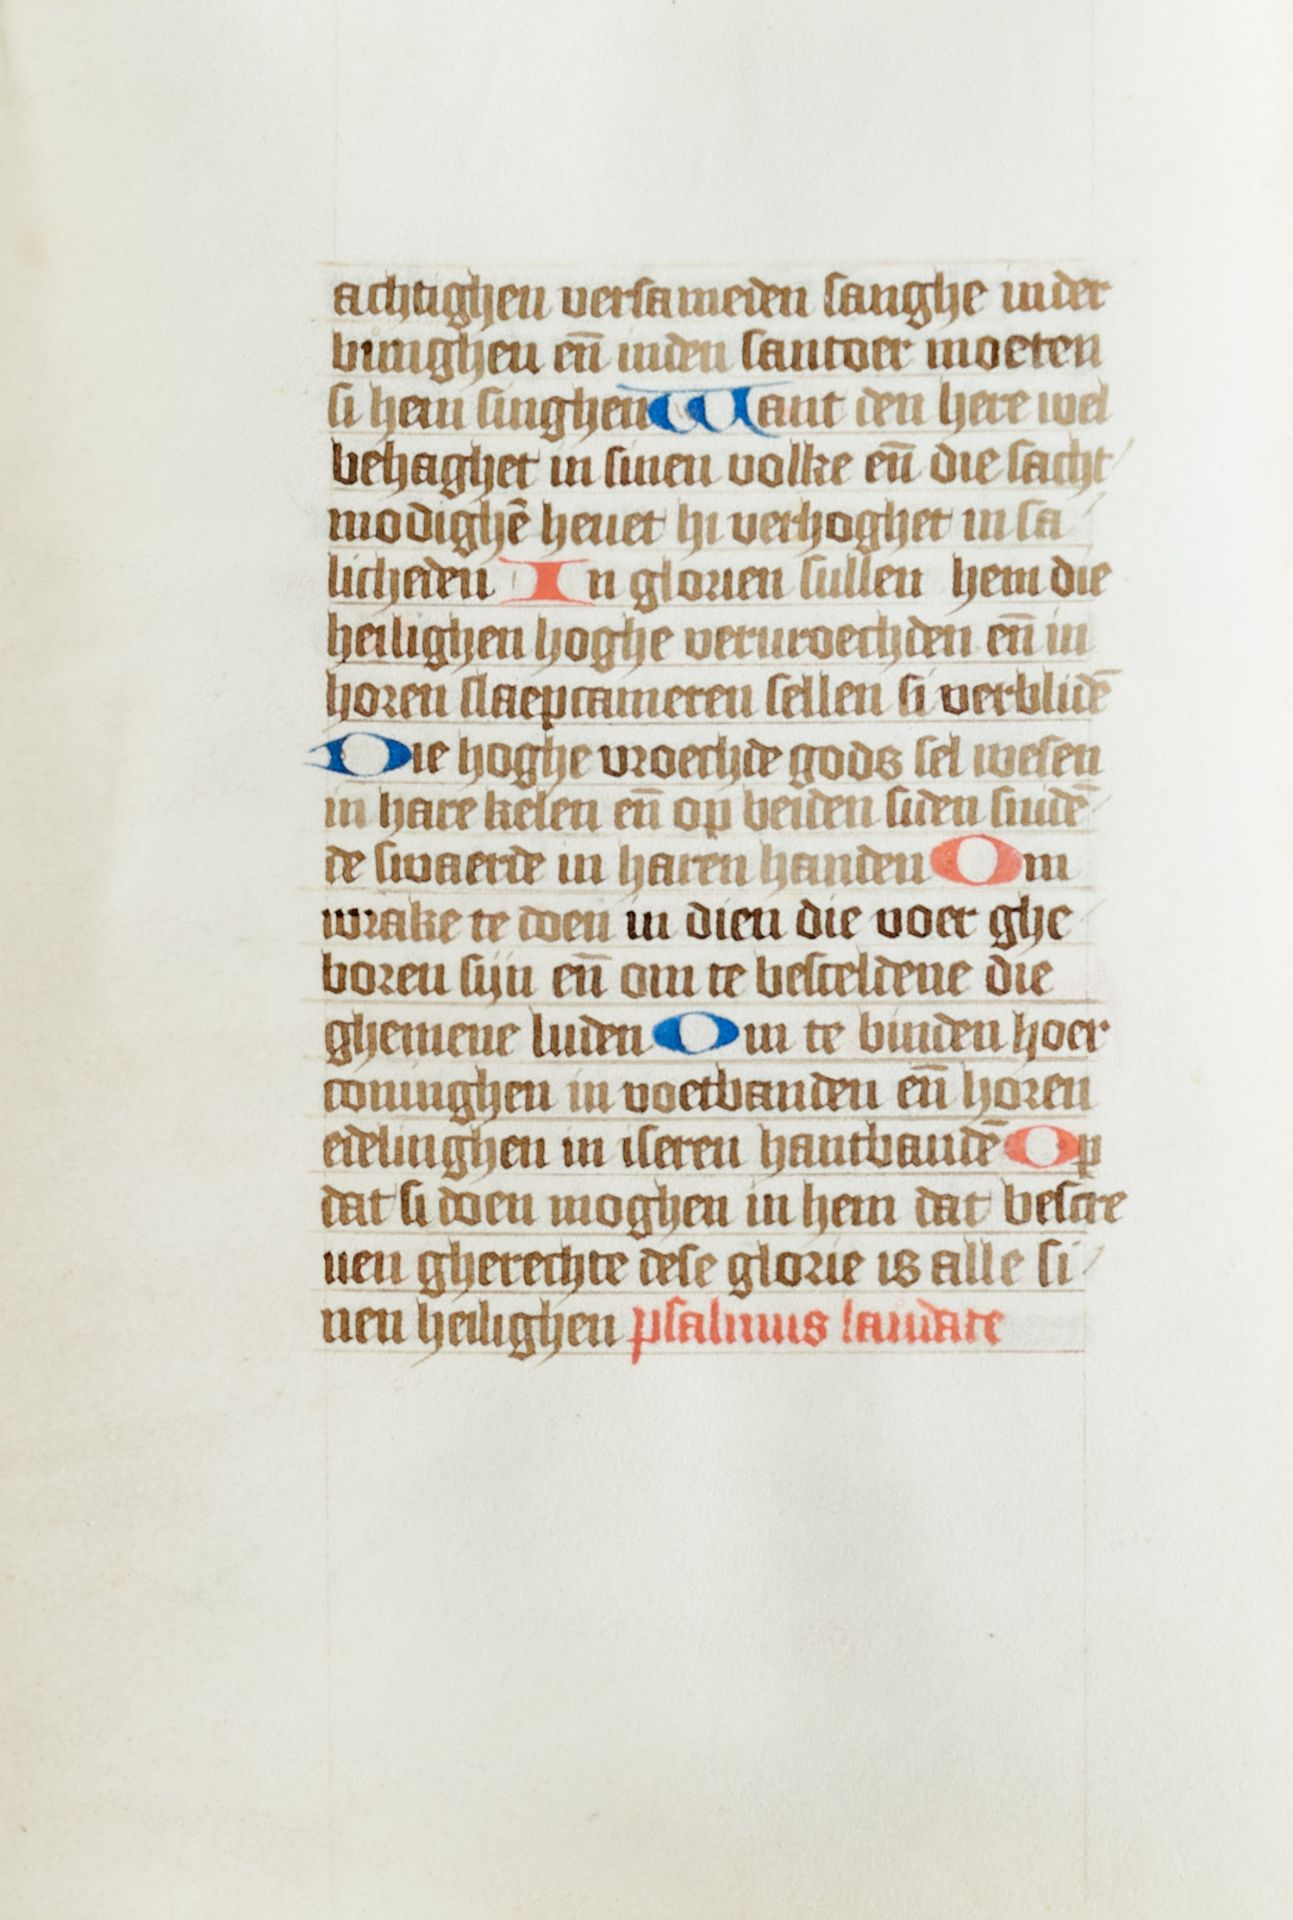 achtighen versameden sanghe in der
bunghen en̄ in den santoer moeten
si hem singhen Want den here wel
behaghet in sinen volke en̄ die sacht
modighē heuet hi verhoghet in sa
licheden In glorien sullen hem die
heilighen hoghe veruroechden en̄ in
horen slaepcameren sellen si verblidē
Die hoghe vroechde gods sel wesen
in hare kelen en̄ op beiden siden snidē
de swaerde in haren handen Om
wrake te doen in dien die voer ghe
boren sijn en̄ om te besceldene die
ghemene luden Om te binden hoer
coninghen in voetbanden en̄ horen
edelinghen in iseren hantbandē Op
dat si doen moghen in hem dat bescre
uen gherechte dese glorie is alle si
nen heilighen psalmus laudate